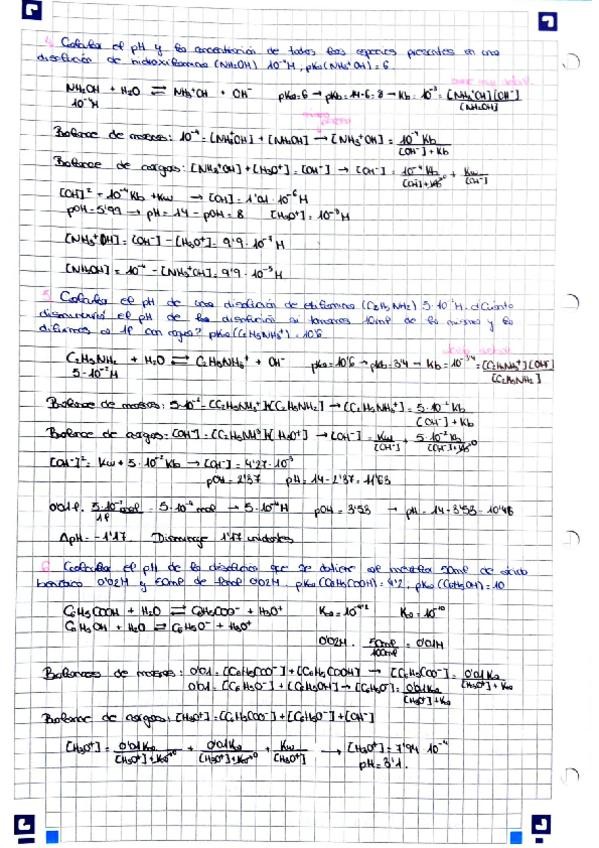 4. Calcula el pH y la concentración de todas las especies presentes en una
disolución de hidroxilamina (NH₂OH) 10⁻⁴M, pKa(NH₃⁺OH)=6.
NH₂OH + H₂O ⇌ NH₃⁺OH + OH⁻ pKa=6 → pKb=14-6=8 → Kb = [NH₃⁺OH][OH⁻]
10⁻⁴M [NH₂OH]
Balance de masas: 10⁻⁴=[NH₃⁺OH]+[NH₂OH] → [NH₃⁺OH] = 10⁻⁴Kb / [OH⁻]+Kb
Balance de cargas: [NH₃⁺OH]+[H₃O⁺]=[OH⁻] → [OH⁻] = 10⁻⁴Kb / [OH]+Kb + Kw / [OH⁻]
[OH]² = 10⁻⁴Kb + Kw → [OH] = 1'01·10⁻⁶M
pOH=5'99 → pH=14-pOH=8 [H₃O⁺]=10⁻⁸M
[NH₃⁺OH]=[OH⁻]-[H₃O⁺]= 9'9·10⁻⁷M
[NH₂OH] = 10⁻⁴-[NH₃⁺OH]= 9'9·10⁻⁵M
5. Calcula el pH de una disolución de etilamina (C₂H₅NH₂) 5·10⁻²M. ¿Cuánto
disminuirá el pH de la disolución si tomamos 10ml de la misma y la
diluimos a 1l con agua? pKa(C₂H₅NH₃⁺)=10'6
C₂H₅NH₂ + H₂O ⇌ C₂H₅NH₃⁺ + OH⁻ pKa=10'6 → pKb=3'4 → Kb=10⁻³'⁴ = [C₂H₅NH₃⁺][OH⁻]
5·10⁻²M [C₂H₅NH₂]
Balance de masas: 5·10⁻²=[C₂H₅NH₃⁺][C₂H₅NH₂] → [C₂H₅NH₃⁺] = 5·10⁻²Kb / [OH⁻]+Kb
Balance de cargas: [OH⁻]=[C₂H₅NH₃⁺][H₃O⁺] → [OH⁻]= Kw / [OH⁻] + 5·10⁻²Kb / [OH⁻]+Kb
[OH⁻]² = Kw + 5·10⁻²Kb → [OH⁻] = 4'27·10⁻³
pOH=2'37 pH=14-2'37=11'63
0'01l. 5·10⁻²mol / 1l = 5·10⁻⁴mol → 5·10⁻⁴M pOH=3'53 → pH=14-3'53=10'46
ΔpH=-1'17. Disminuye 1'17 unidades
6. Calcula el pH de la disolución que se obtiene al mezclar 50ml de ácido
benzoico 0'02M y 50ml de fenol 0'02M. pKa(C₆H₅COOH)=4'2, pKa(C₆H₅OH)=10
C₆H₅COOH + H₂O ⇌ C₆H₅COO⁻ + H₃O⁺ Ka=10⁻⁴'² Ka=10⁻¹⁰
C₆H₅OH + H₂O ⇌ C₆H₅O⁻ + H₃O⁺
0'02M. 50ml / 100ml = 0'01M
Balances de masas: 0'01=[C₆H₅COO⁻]+[C₆H₅COOH] → [C₆H₅COO⁻]= 0'01Ka / [H₃O⁺]+Ka
0'01=[C₆H₅O⁻]+[C₆H₅OH] → [C₆H₅O⁻]= 0'01Ka / [H₃O⁺]+Ka
Balance de cargas: [H₃O⁺]=[C₆H₅COO⁻]+[C₆H₅O⁻]+[OH⁻]
[H₃O⁺]= 0'01Ka / [H₃O⁺]+Ka + 0'01Ka / [H₃O⁺]+Ka + Kw / [H₃O⁺] → [H₃O⁺]=7'94·10⁻⁴
pH=3'1.